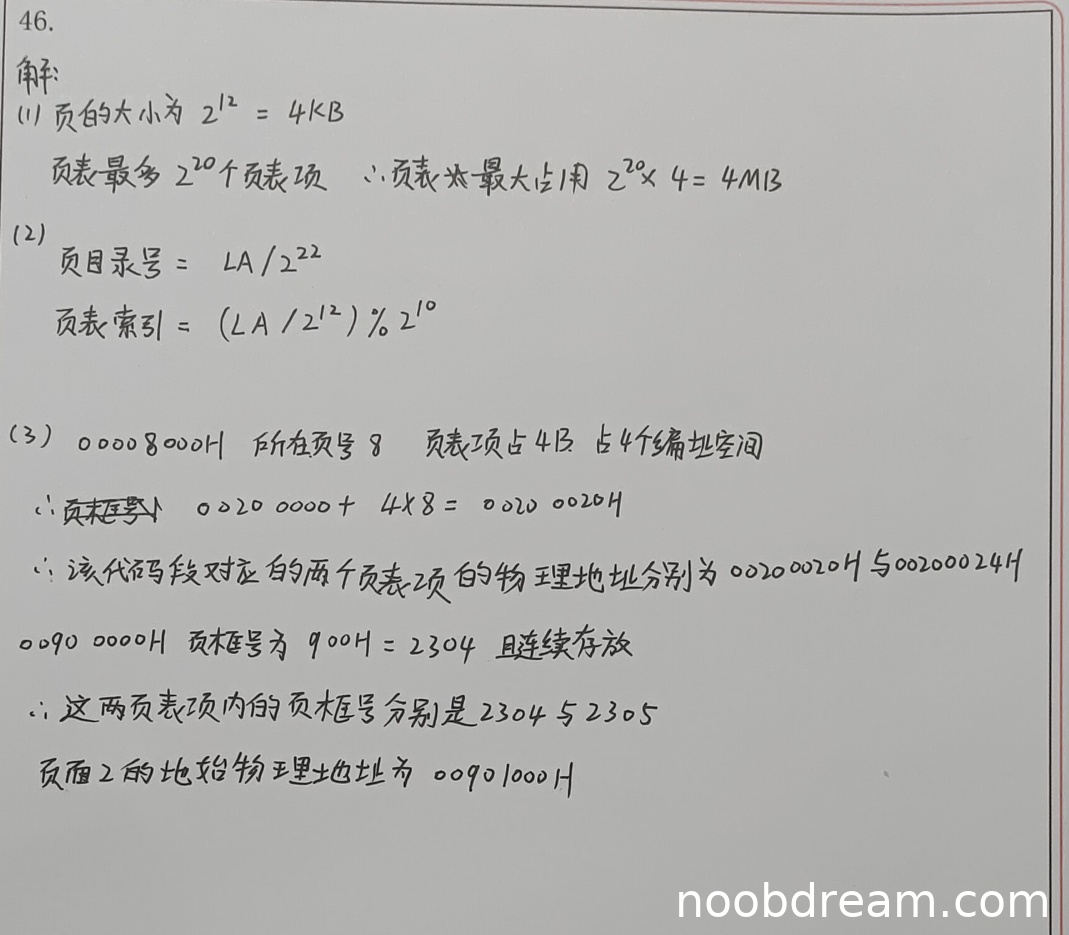 46.
解:
(1) 页的大小为 2¹² = 4KB
页表最多 2²⁰个页表项 ∴页表最大占用 2²⁰× 4 = 4MB
(2)
页目录号 = LA / 2²²
页表索引 = (LA / 2¹²) % 2¹⁰
(3) 00008000H 所在页号 8 页表项占4B 占4个编址空间
∴页框号 0020 0000 + 4×8 = 0020 0020H
∴ 该代码段对应的两个页表项的物理地址分别为 00200020H 与00200024H
0090 0000H 页框号为 900H = 2304 且连续存放
∴ 这两页表项内的页框号分别是2304 与 2305
页面2的起始物理地址为 00901000H
noobdream.com